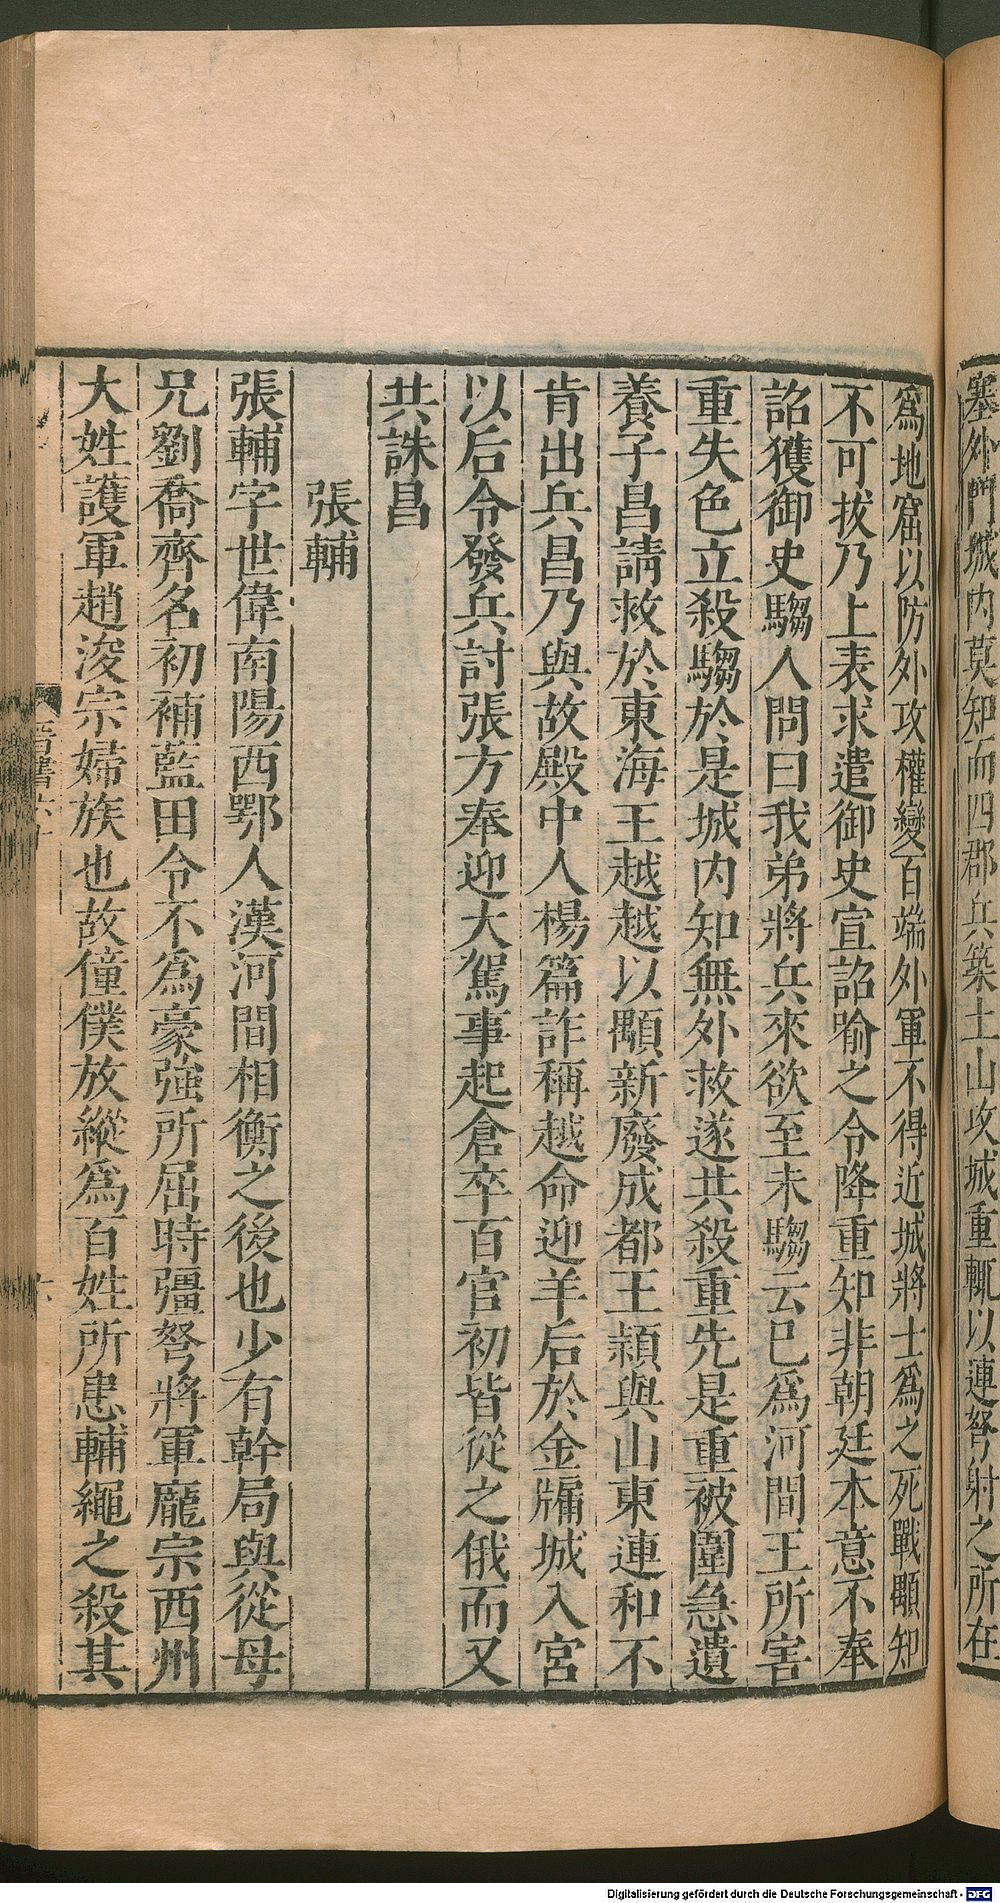 塞外門城内莫知而四郡兵築土山攻城重輒以連弩射之所在
爲地窟以防外攻權變百端外軍不得近城將士爲之死戰顒知
不可拔乃上表求遣御史宣詔喻之令降重知非朝廷本意不奉
詔獲御史騶人問曰我弟將兵來欲至未騶云已爲河間王所害
重失色立殺騶於是城内知無外救遂共殺重先是重被圍急遺
養子昌請救於東海王越越以顒新廢成都王穎與山東連和不
肯出兵昌乃與故殿中人楊篇詐稱越命迎羊后於金牗城入宮
以后令發兵討張方奉迎大駕事起倉卒百官初皆從之俄而又
共誅昌
張輔
張輔字世偉南陽西鄂人漢河間相衡之後也少有幹局與從母
兄劉喬齊名初補藍田令不爲豪強所屈時彊弩將軍龐宗西州
大姓護軍趙浚宗婦族也故僮僕放縱爲百姓所患輔繩之殺其
晋書六十
六
Digitalisierung gefördert durch die Deutsche Forschungsgemeinschaft - DFG